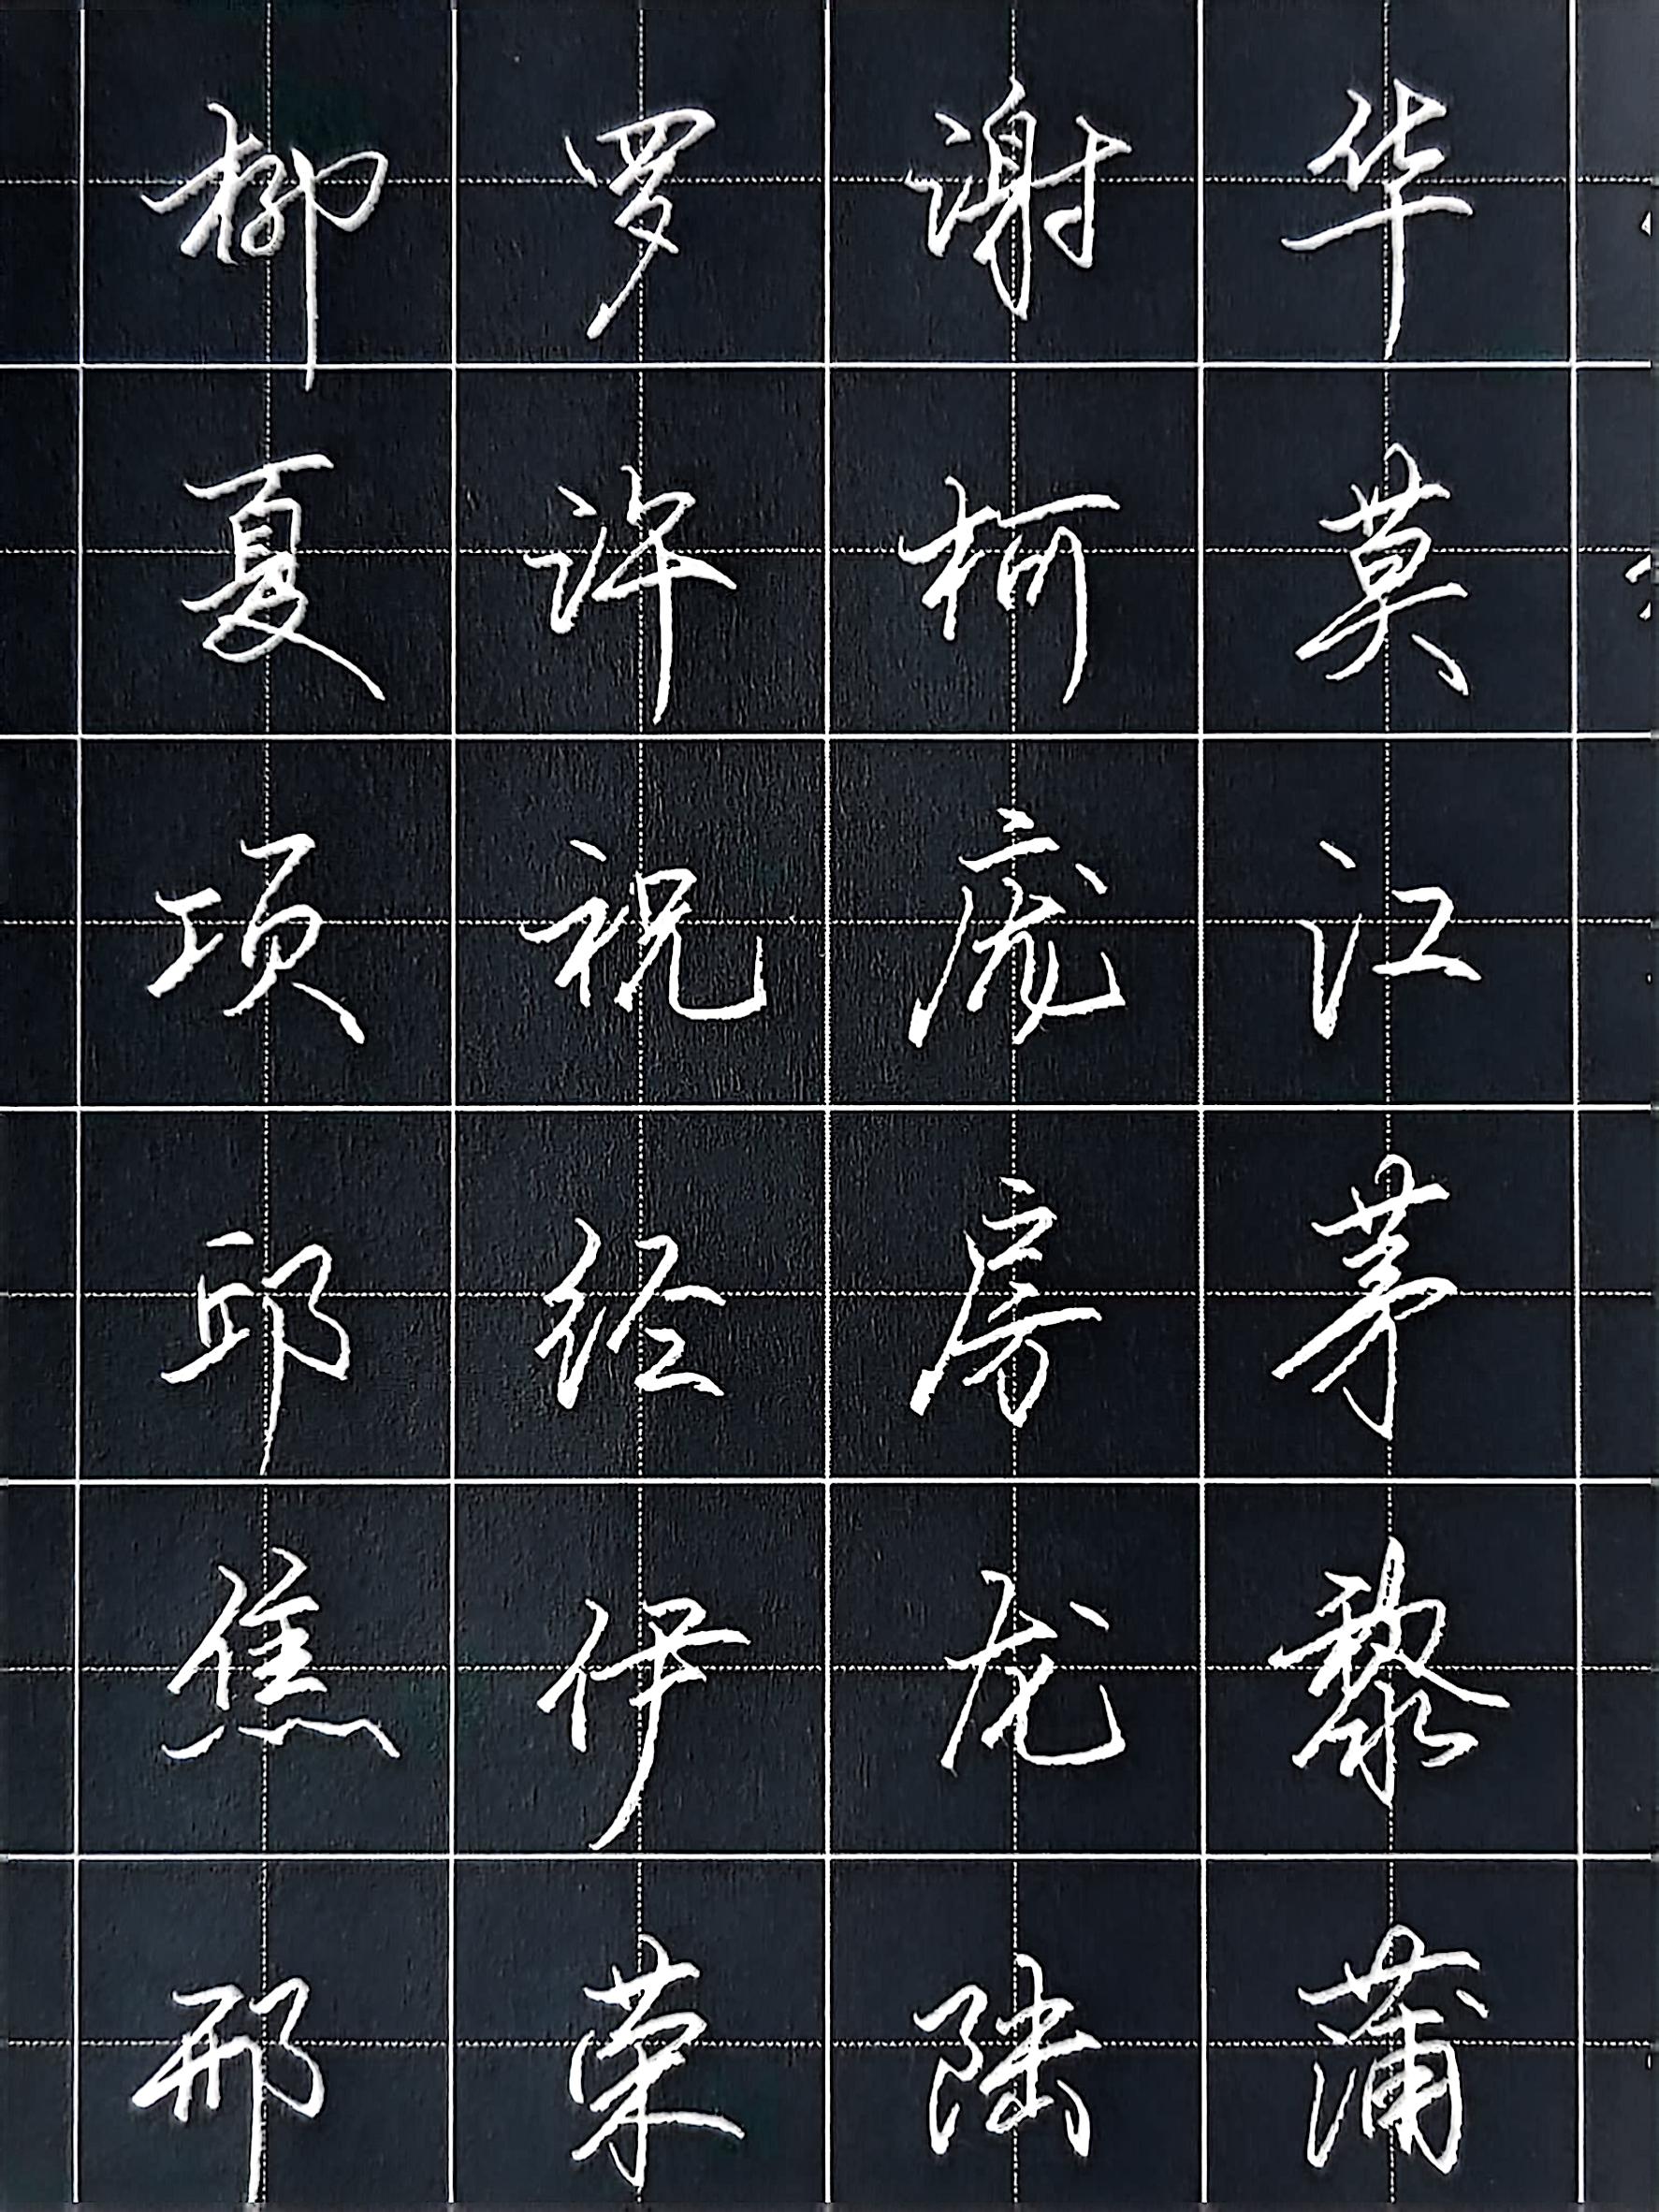 柳罗谢华
夏许柯莫
项祝庞江
邱经房茅
焦伊龙黎
邢荣陆蒲